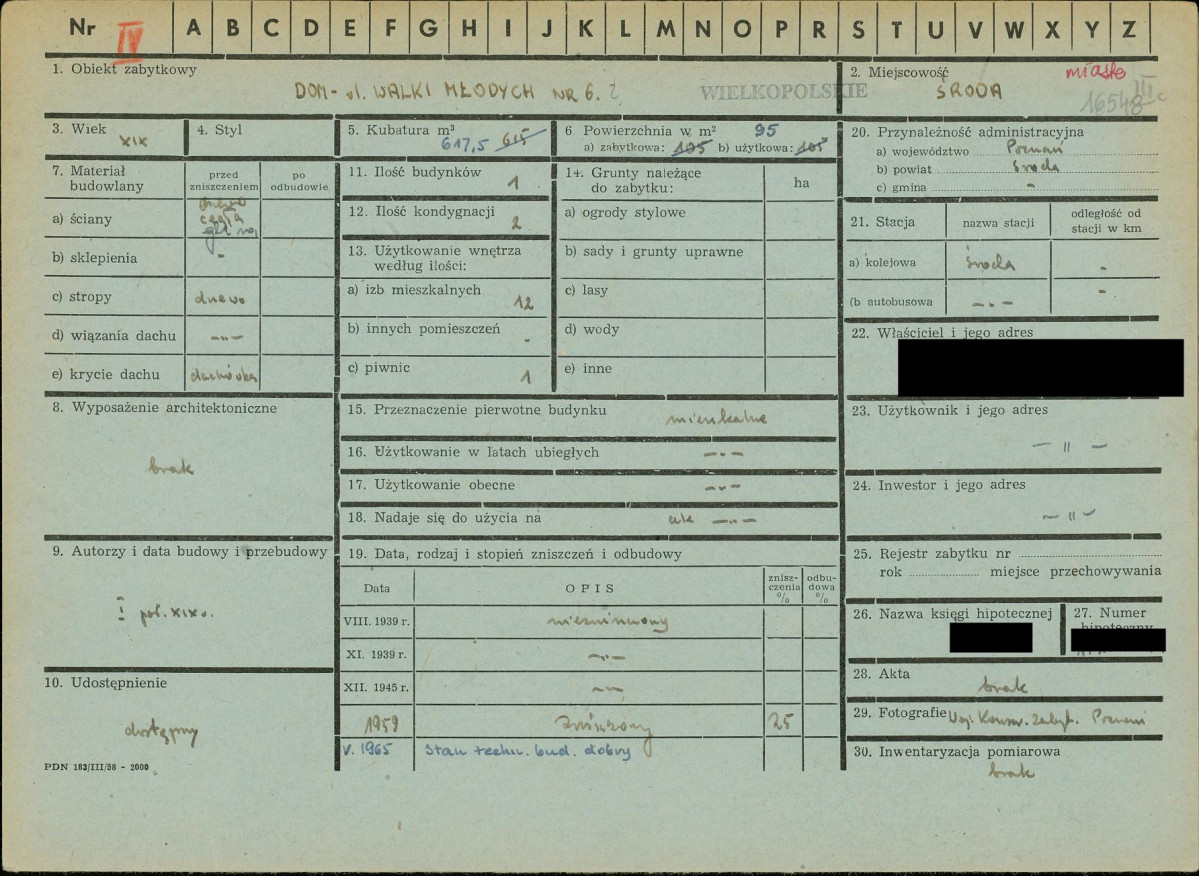 Nr IV A B C D E F G H I J K L M N O P R S T U V W X Y Z
1. Obiekt zabytkowy
DOM - ul. WALKI MŁODYCH NR 6.
WIELKOPOLSKIE
2. Miejscowość miasto
ŚRODA
16548 III
3. Wiek
XIX
4. Styl
5. Kubatura m³
617,5 615
6. Powierzchnia w m² 95
a) zabytkowa: 105 b) użytkowa: 105
7. Materiał budowlany
przed zniszczeniem
po odbudowie
a) ściany
cegła
b) sklepienia -
c) stropy drewo
d) wiązania dachu -"-
e) krycie dachu dachówka
8. Wyposażenie architektoniczne
brak
9. Autorzy i data budowy i przebudowy
I poł. XIX w.
10. Udostępnienie
dostępny
PDN 183/III/58 - 2000
11. Ilość budynków 1
12. Ilość kondygnacji 2
13. Użytkowanie wnętrza
według ilości:
a) izb mieszkalnych 12
b) innych pomieszczeń -
c) piwnic 1
14. Grunty należące
do zabytku:
ha
a) ogrody stylowe
b) sady i grunty uprawne
c) lasy
d) wody
e) inne
15. Przeznaczenie pierwotne budynku mieszkalne
16. Użytkowanie w latach ubiegłych -"-
17. Użytkowanie obecne -"-
18. Nadaje się do użycia na cele -"-
19. Data, rodzaj i stopień zniszczeń i odbudowy
Data
OPIS
znisz-
czenia
%
odbu-
dowa
%
VIII. 1939 r. niezniszczony
XI. 1939 r. -"-
XII. 1945 r. -"-
1959 zniszczony 25
V. 1965 Stan techn. bud. dobry
20. Przynależność administracyjna
a) województwo Poznań
b) powiat Środa
c) gmina -
21. Stacja
nazwa stacji
odległość od
stacji w km
a) kolejowa Środa -
(b autobusowa -"- -
22. Właściciel i jego adres
23. Użytkownik i jego adres
- " -
24. Inwestor i jego adres
- " -
25. Rejestr zabytku nr
rok miejsce przechowywania
26. Nazwa księgi hipotecznej
27. Numer
hipoteczny
28. Akta
brak
29. Fotografie Woj. Konserw. Zabyt. Poznań
30. Inwentaryzacja pomiarowa
brak